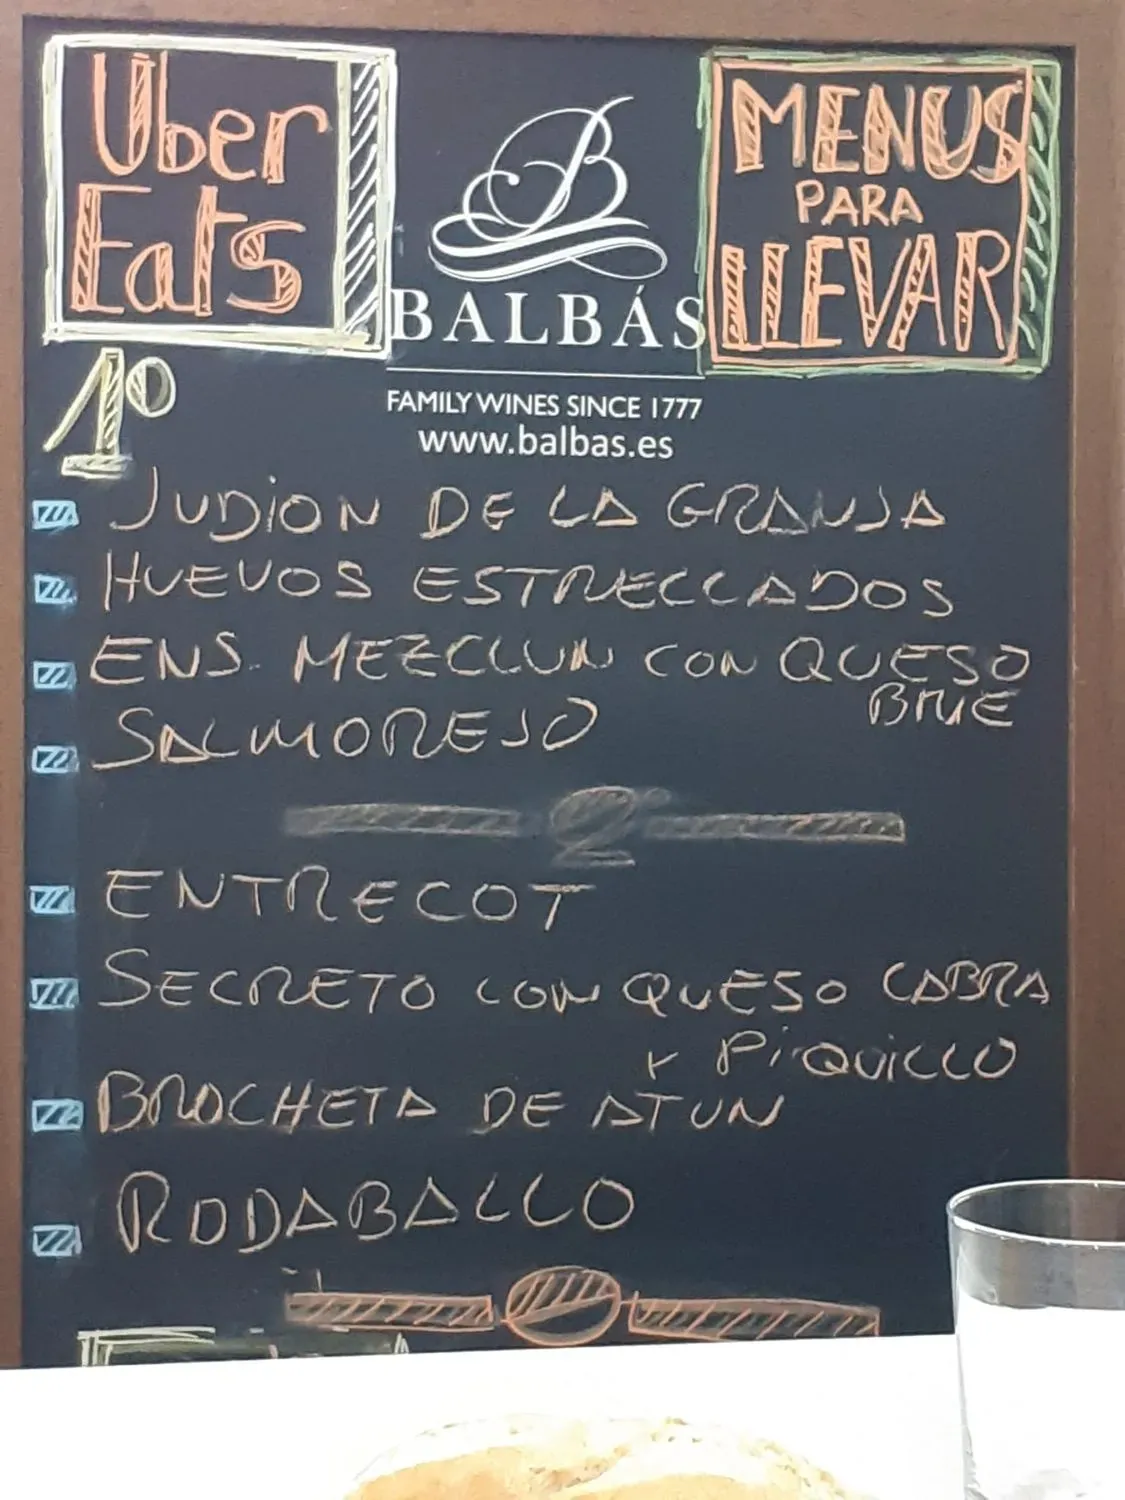 Uber
Eats
B
BALBÁS
FAMILY WINES SINCE 1777
www.balbas.es
MENUS
PARA
LLEVAR
1º
JUDION DE LA GRANJA
HUEVOS ESTRELLADOS
ENS. MEZCLUM CON QUESO
BRIE
SALMOREJO
2º
ENTRECOT
SECRETO CON QUESO CABRA
Y PIQUILLO
BROCHETA DE ATUN
RODABALLO